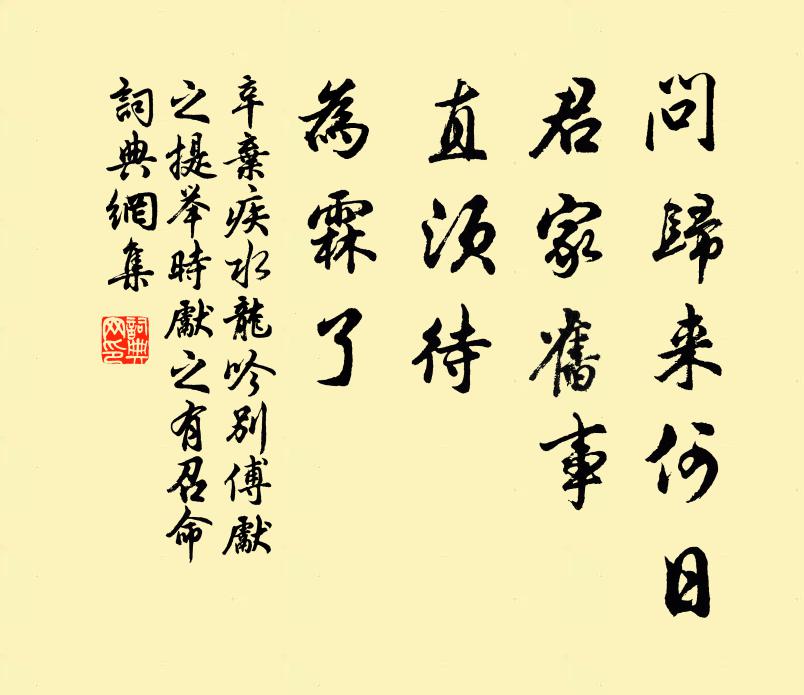 問歸来何日
君家舊事
直須待
為霖了
辛棄疾水龍吟別傅獻
之提举時獻之有召命
詞典網集
詞典網印